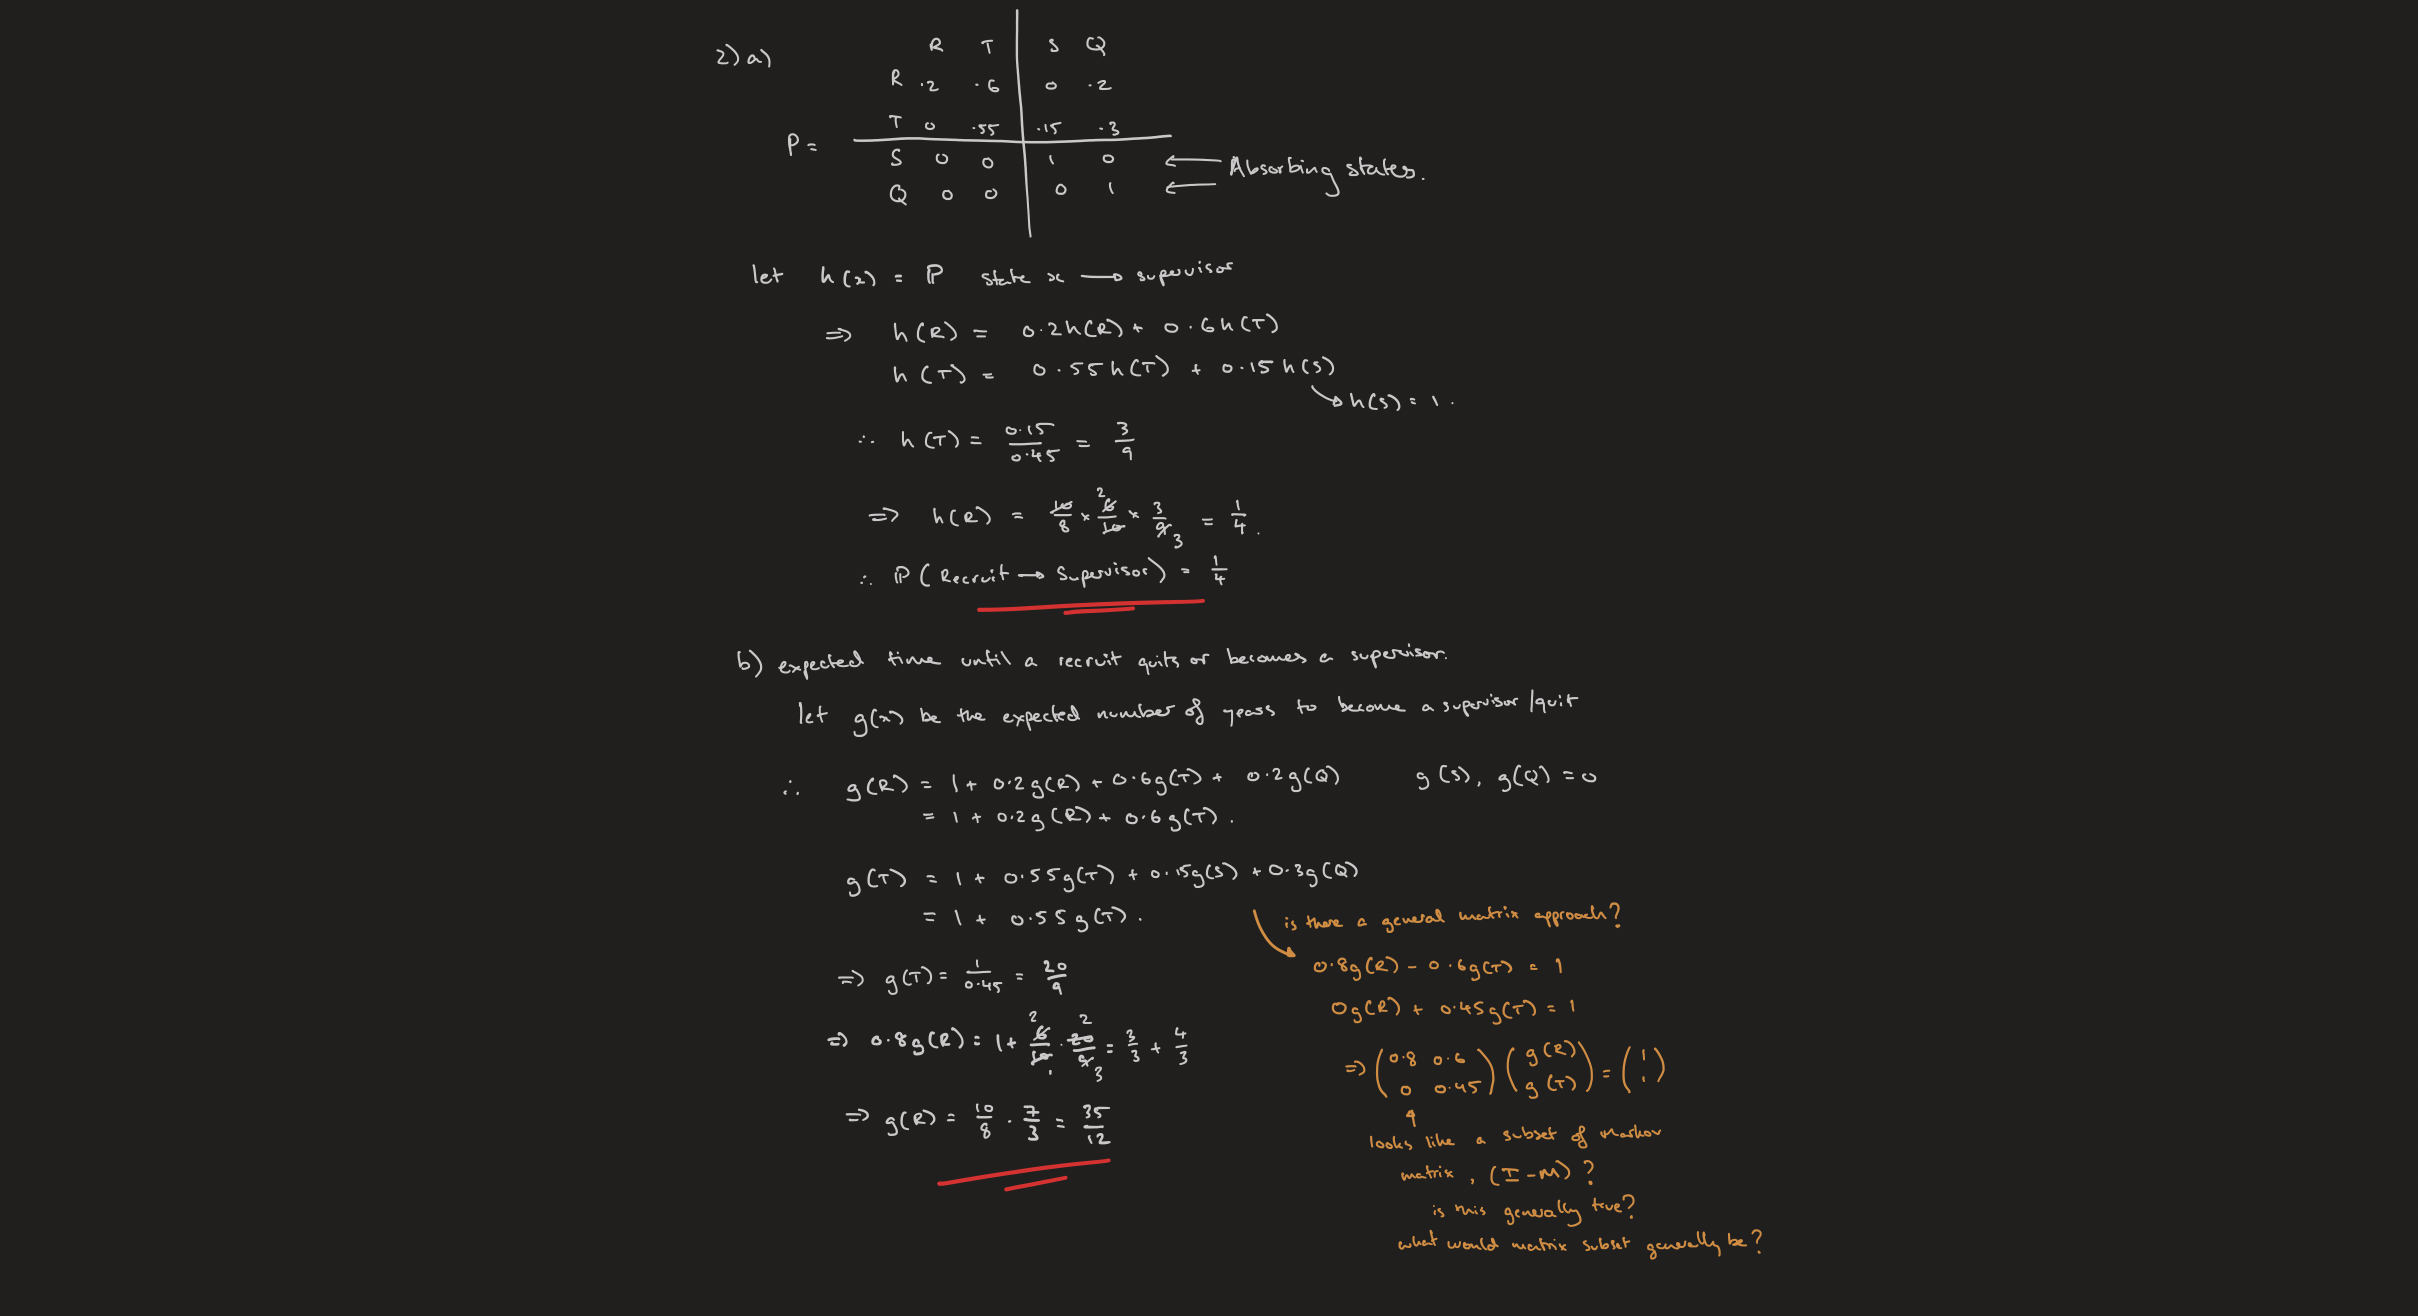 2) a)
R T S Q
R .2 .6 0 .2
T 0 .55 .15 .3
P =
S 0 0 1 0
Q 0 0 0 1
← Absorbing states.
let h(x) = ℙ state x → supervisor
⇒ h(R) = 0.2h(R) + 0.6h(T)
h(T) = 0.55h(T) + 0.15h(S)
h(S) = 1.
∴ h(T) = 0.15/0.45 = 3/9
⇒ h(R) = 10/8 × 6/10 × 3/9 = 1/4.
2
3
∴ ℙ(Recruit → Supervisor) = 1/4
b) expected time until a recruit quits or becomes a supervisor.
let g(x) be the expected number of years to become a supervisor/quit
∴ g(R) = 1 + 0.2g(R) + 0.6g(T) + 0.2g(Q) g(S), g(Q) = 0
= 1 + 0.2g(R) + 0.6g(T).
g(T) = 1 + 0.55g(T) + 0.15g(S) + 0.3g(Q)
= 1 + 0.55g(T).
⇒ g(T) = 1/0.45 = 20/9
⇒ 0.8g(R) = 1 + 6/10 · 20/9 = 3/3 + 4/3
2 2
1 3
⇒ g(R) = 10/8 · 7/3 = 35/12
is there a general matrix approach?
0.8g(R) - 0.6g(T) = 1
0g(R) + 0.45g(T) = 1
⇒ (0.8 0.6) (g(R)) = (1)
(0 0.45) (g(T)) (1)
looks like a subset of Markov
matrix, (I-M)?
is this generally true?
what would matrix subset generally be?